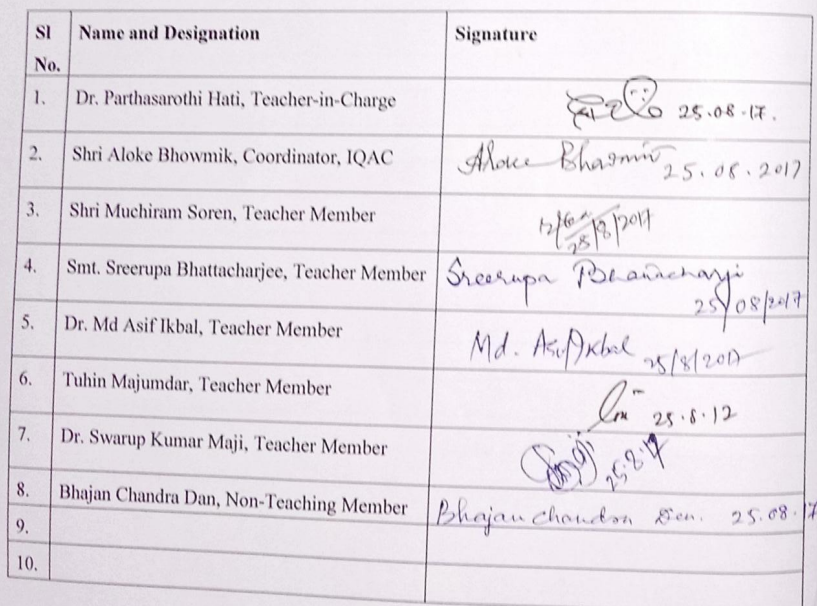 Sl No. Name and Designation Signature
1. Dr. Parthasarothi Hati, Teacher-in-Charge 25.08.17.
2. Shri Aloke Bhowmik, Coordinator, IQAC Aloke Bhowmik 25.08.2017
3. Shri Muchiram Soren, Teacher Member 25/8/2017
4. Smt. Sreerupa Bhattacharjee, Teacher Member Sreerupa Bhattacharji 25/08/2017
5. Dr. Md Asif Ikbal, Teacher Member Md. Asif Ikbal 25/8/2017
6. Tuhin Majumdar, Teacher Member 25.8.17
7. Dr. Swarup Kumar Maji, Teacher Member 25.8.17
8. Bhajan Chandra Dan, Non-Teaching Member Bhajan Chandra Dan. 25.08.17
9.
10.